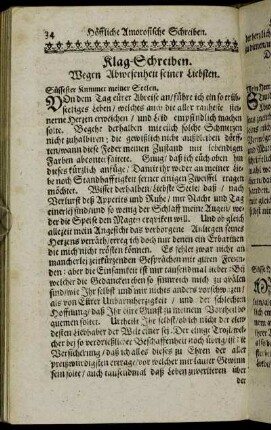 34 Höffliche Amorosische Schreiben.
Klag-Schreiben.
Wegen Abwesenheit seiner Liebsten.
Süssester Kummer meiner Seelen.
VOn dem Tag eurer Abreise an/ führe ich ein so trüb-
seeliges Leben / welches auch die aller
nerne Herzen erweichen / und Leid empfindlich machen
solte. Begehr derhalben mit euch solche Schmerzen
nicht zuhalbiren; die gewißlich nicht ausbleiben dörff-
ten/ wann diese Feder meinen Zustand mit lebendigen
Farben abconterfaitete. Genug/ daß ich euch oben hin
dieses fürzlich anfüge; Damit ihr weder an meiner Lie-
be noch Standhafftigkeit ferner einigen Zweiffel tragen
möchtet. Wisset derhalben/ liebste Seele/ daß / nach
Verlurst deß Appetits und Ruhe/ mir Nacht und Tag
einerley sind/ und so wenig der Schlaff meine Augen/ we-
der die Speise den Magen ergreiffen will. Und ob gleich
allezeit mein Angesicht das verborgene Anligen seines
Hertzens verräth/ erzeig ich doch nur denen ein Erbarmen
die mich nicht trösten können. Es fehlet zwar nicht an
mancherley zeitkürzenden Gesprächen mit guten Freun-
den; aber die Einsamkeit ist mir tausendmal lieber: Bey
welcher die Gedancken eben so sinnreich mich zu quälen
sind/ wie Ihr selbst/ und mir nichts anders vorschwatzen/
als von Eurer Unbarmhertzigkeit / und der schlechten
Hoffnung/ daß Ihr eine Gunst zu meinem Vortheil be-
quemen soltet. Urtheilt Ihr selbst/ ob ich nicht der elen-
deste Liebhaber der Welt seye. Der einige Trost/ wel-
cher bey so verdrießlicher Beschaffenheit noch übrig/ ist; die
Versicherung/ daß ich alles dieses zu Ehren der aller
preißwürdigsten ertrage/ vor welcher mir lauter Gewinn
seyn solte / auch tausendmal daß Leben zuverlieren über
der